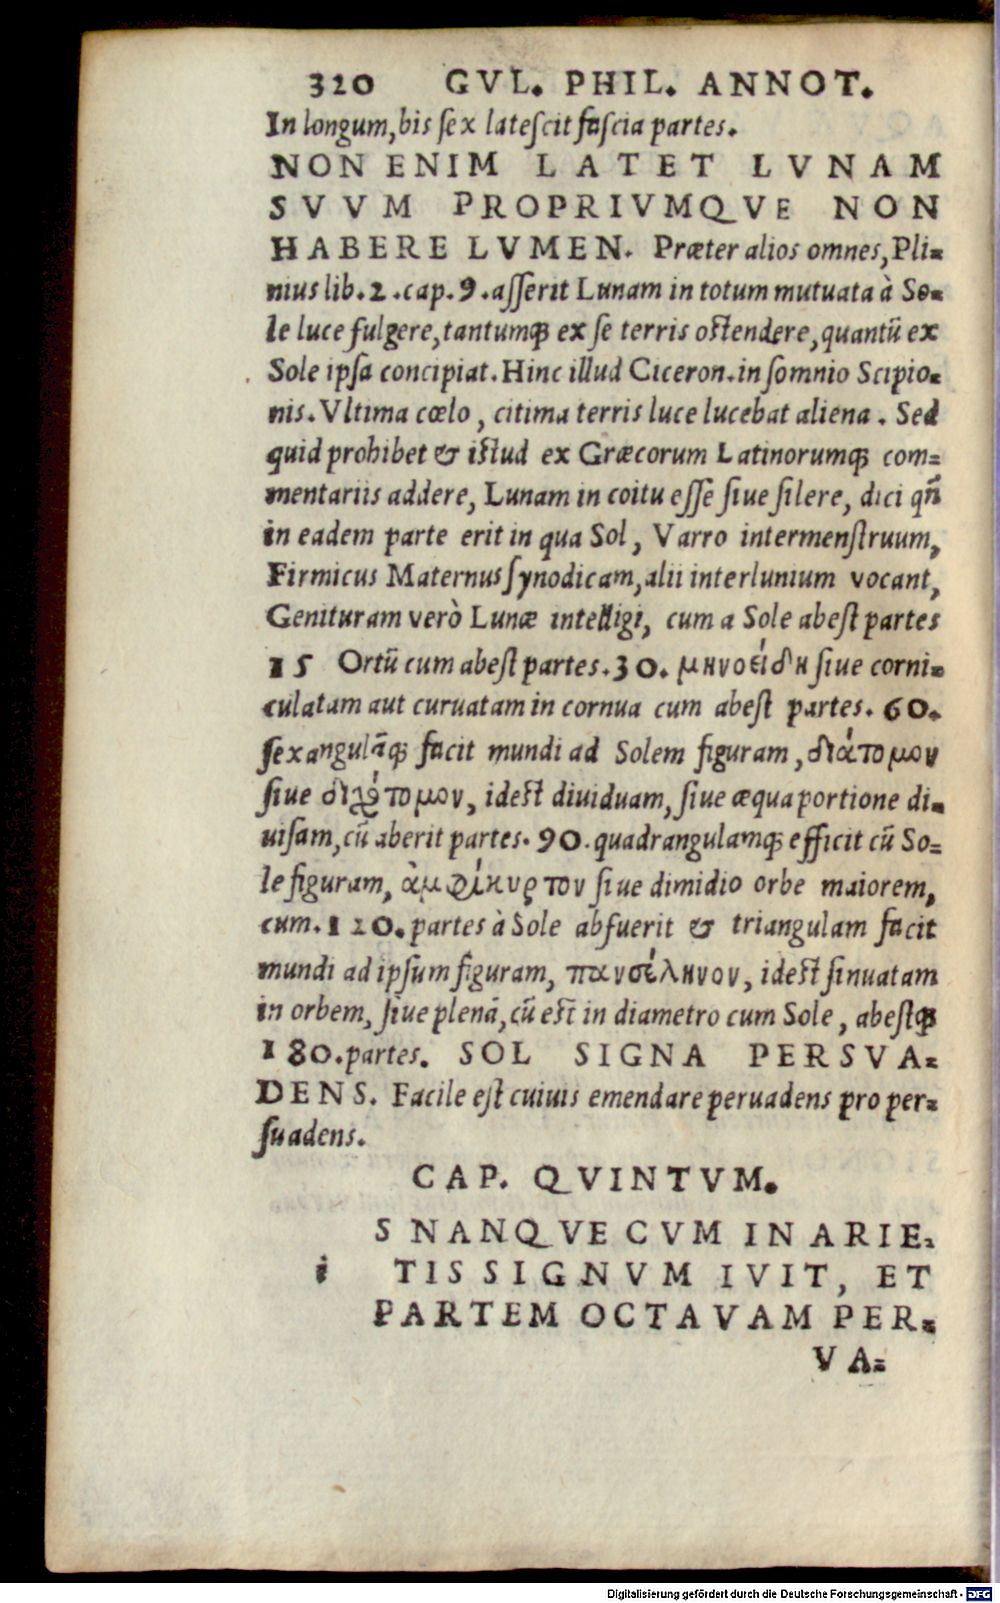 320 GVL. PHIL. ANNOT.
In longum, bis ſex lateſcit faſcia partes.
NON ENIM LATET LVNAM
SVVM PROPRIVMQVE NON
HABERE LVMEN. Præter alios omnes, Pli-
nius lib. 2. cap. 9. aſſerit Lunam in totum mutuata à So-
le luce fulgere, tantumq́; ex ſe terris oſtendere, quantũ ex
Sole ipſa concipiat. Hinc illud Ciceron. in ſomnio Scipio-
nis. Vltima cœlo, citima terris luce lucebat aliena. Sed
quid prohibet & iſtud ex Græcorum Latinorumq́; com-
mentariis addere, Lunam in coitu eſſe ſiue ſilere, dici qñ
in eadem parte erit in qua Sol, Varro intermenſtruum,
Firmicus Maternus ſynodicam, alii interlunium vocant,
Genituram verò Lunæ intelligi, cum a Sole abeſt partes
15 Ortũ cum abeſt partes. 30. μηνοείδη ſiue corni-
culatam aut curuatam in cornua cum abeſt partes. 60.
ſexangulãq́; facit mundi ad Solem figuram, διάτομον
ſiue διχότομον, ideſt diuiduam, ſiue æqua portione di-
uiſam, cũ aberit partes. 90. quadrangulamq́; efficit cũ So-
le figuram, ἀμφίκυρτον ſiue dimidio orbe maiorem,
cum. 120. partes à Sole abfuerit & triangulam facit
mundi ad ipſum figuram, πανσέληνον, ideſt ſinuatam
in orbem, ſiue plenã, cũ eſt in diametro cum Sole, abeſtq́;
180. partes. SOL SIGNA PERSVA-
DENS. Facile eſt cuiuis emendare peruadens pro per-
ſuadens.
CAP. QVINTVM.
S NANQVE CVM IN ARIE-
i TIS SIGNVM IVIT, ET
PARTEM OCTAVAM PER-
VA-
Digitalisierung gefördert durch die Deutsche Forschungsgemeinschaft - DFG